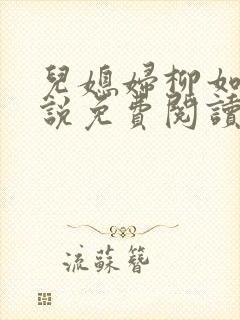 兒媳婦柳如
說免費閱讀
流蘇簪